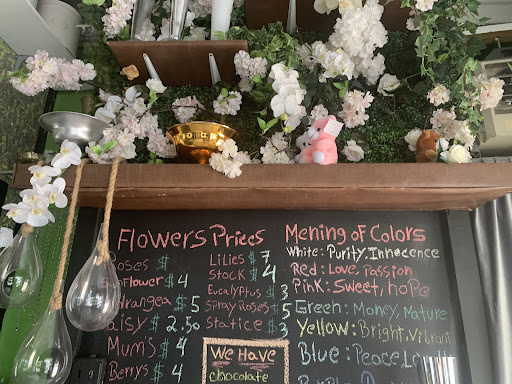 Flowers Prices
Roses $
flower $ 4
drangea $ 5
aisy $ 2.50
Mum's $ 4
Berrys $ 4
Lilies $ 7
Stock $ 4
Eucalyptus $ 3
Spray Roses $ 5
Statice $ 3
We Have
chocolate
Mening of Colors
White: Purity, Innocence
Red: Love, Passion
Pink: Sweet, hope
Green: Money, Mature
Yellow: Bright, Vibrant
Blue: Peace,